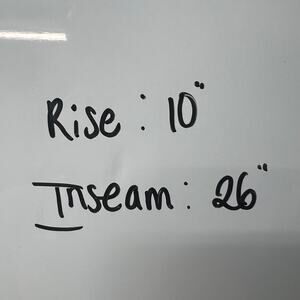 Rise: 10"
Inseam: 26"